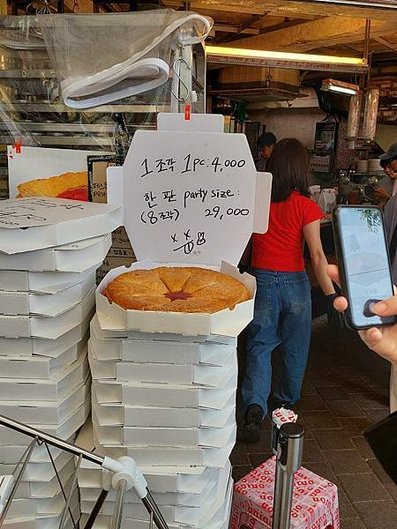 1 조각 1pc: 4,000
한 판 party size:
(8조각) 29,000